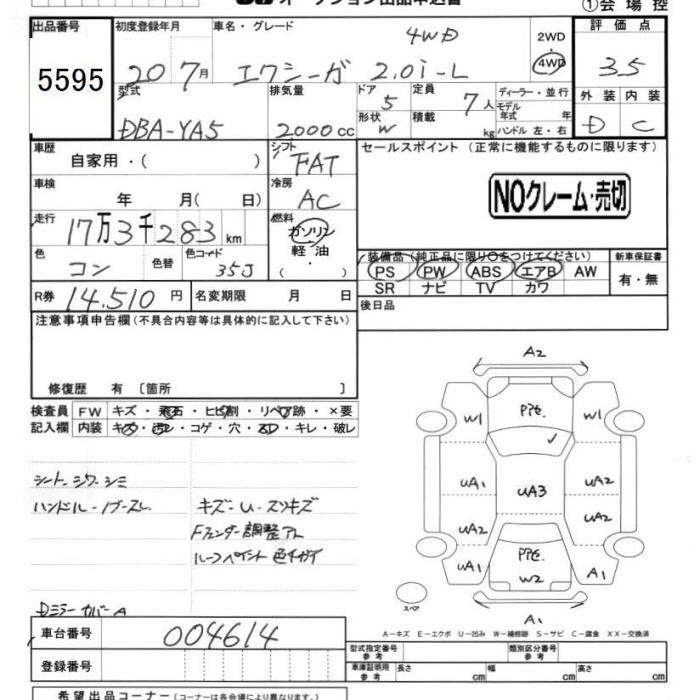 オークション出品申込書
①会場控
出品番号 初度登録年月 車名・グレード 2WD 評価点
5595 20 7月 エクシーガ 4WD 2.0i-L 4WD 3.5
型式 排気量 ドア 5 定員 7人 ディーラー・並行 外装 内装
DBA-YA5 2000cc 形状 W 積載 kg モデル年式 年 D C
ハンドル 左・右
車歴 自家用・( ) シフト FAT セールスポイント (正常に機能するものに限ります)
車検 年 月( 日) 冷房 AC NOクレーム・売切
走行 17万3千283km 燃料 ガソリン 軽油 ( ・ )
色 コン 色替 色コード 35J 装備品(純正品に限り○をつけてください) 新車保証書
PS PW ABS エアB AW 有・無
SR ナビ TV カワ
R券 14,510円 名変期限 月 日 後日品
注意事項申告欄(不具合内容等は具体的に記入して下さい)
修復歴 有 〔箇所 〕
検査員 FW キズ・飛石・ヒビ割・リペア跡・×要
記入欄 内装 キズ・汚れ・コゲ・穴・スレ・キレ・破レ
シート シワ・シミ
ハンドル・ノブスレ キズ・U・スリキズ
Fフェンダー調整アト
ルーフペイント色チガイ
Dミラーカバー A
A2
W1 Pペ W1
UA1 UA3 UA2
UA2 UA2
UA1 Pペ W2 A1
スペア A1
A-キズ E-エクボ U-凹み W-補修跡 S-サビ C-腐食 XX-交換済
車台番号 004614 型式指定番号 参考 類別区分番号 参考
登録番号 車庫証明用 参考 長さ cm 幅 cm 高さ cm
希望出品コーナー (コーナーは各会場により異なります。)